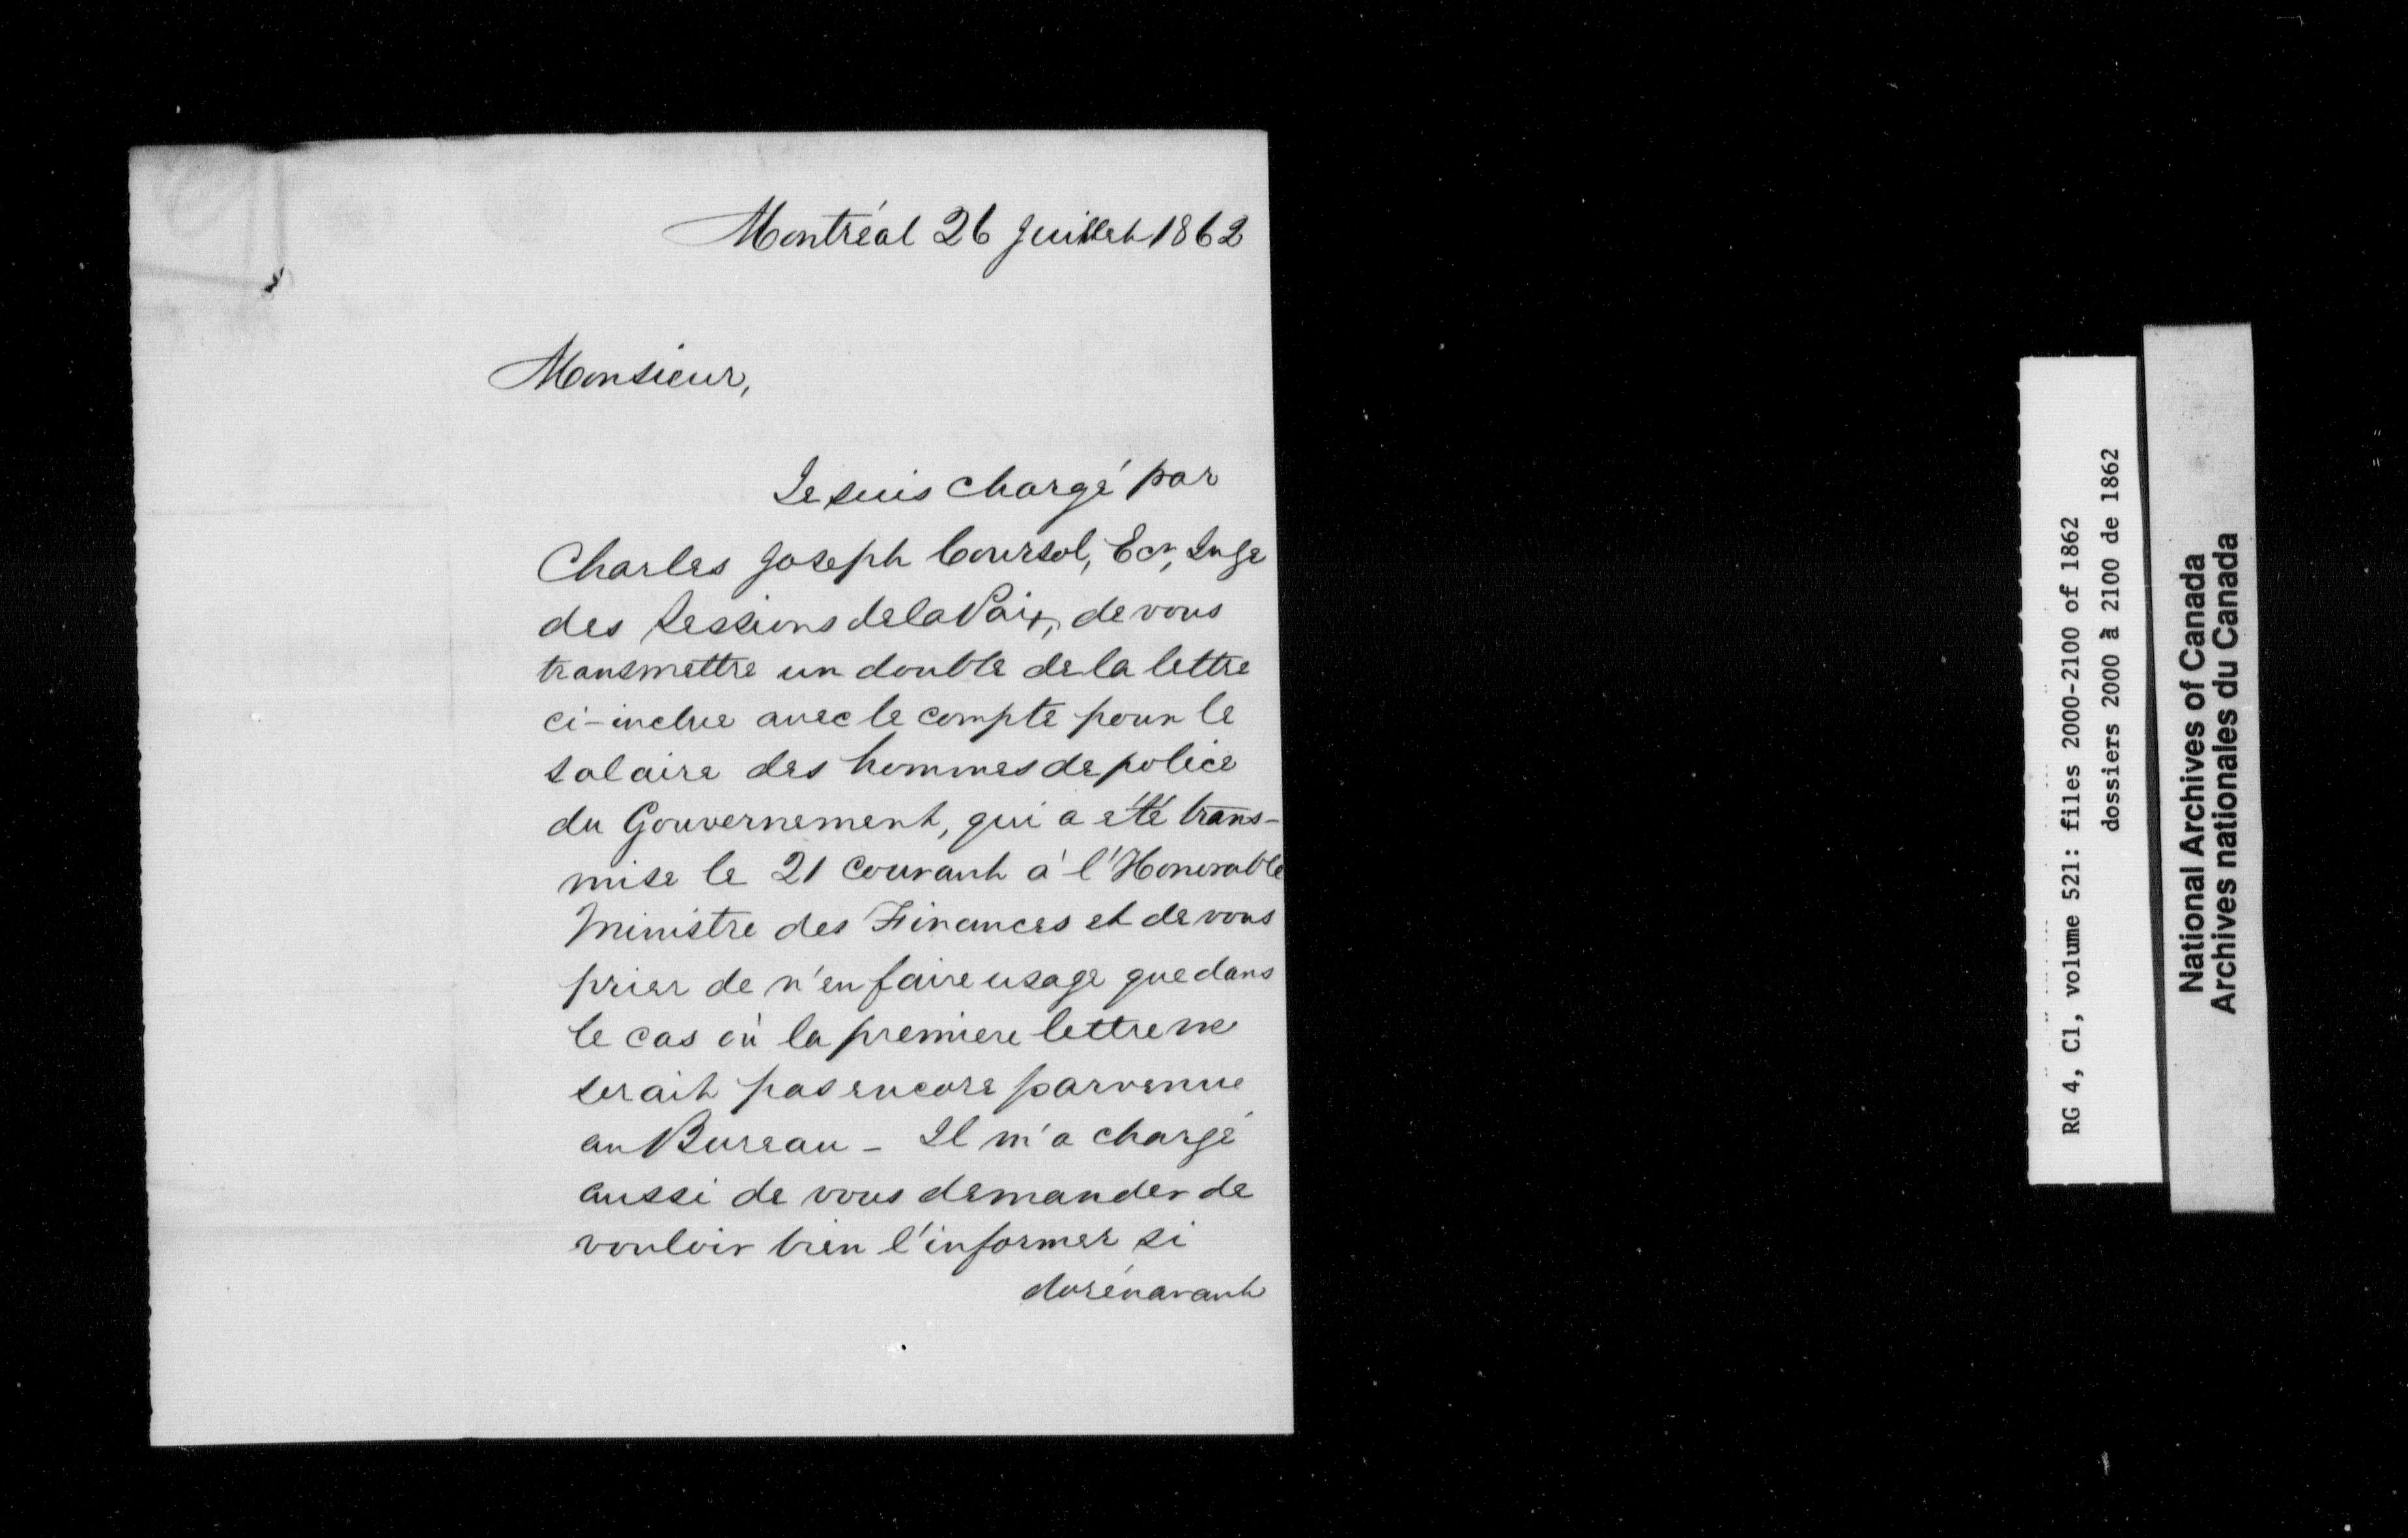 Montréal 26 Juillet 1862
Monsieur,
Je suis chargé par
Charles Joseph Coursol, Ecr, Juge
des Sessions de la Paix, de vous
transmettre un double de la lettre
ci-inclue avec le compte pour le
salaire des hommes de police
du Gouvernement, qui a été trans-
mise le 21 courant à l'Honorable
Ministre des Finances et de vous
prier de n'en faire usage que dans
le cas où la premiere lettre ne
serait pas encore parvenue
au Bureau - Il m'a chargé
aussi de vous demander de
vouloir bien l'informer si
dorénavant
RG 4, C1, volume 521: files 2000-2100 of 1862
dossiers 2000 à 2100 de 1862
National Archives of Canada
Archives nationales du Canada